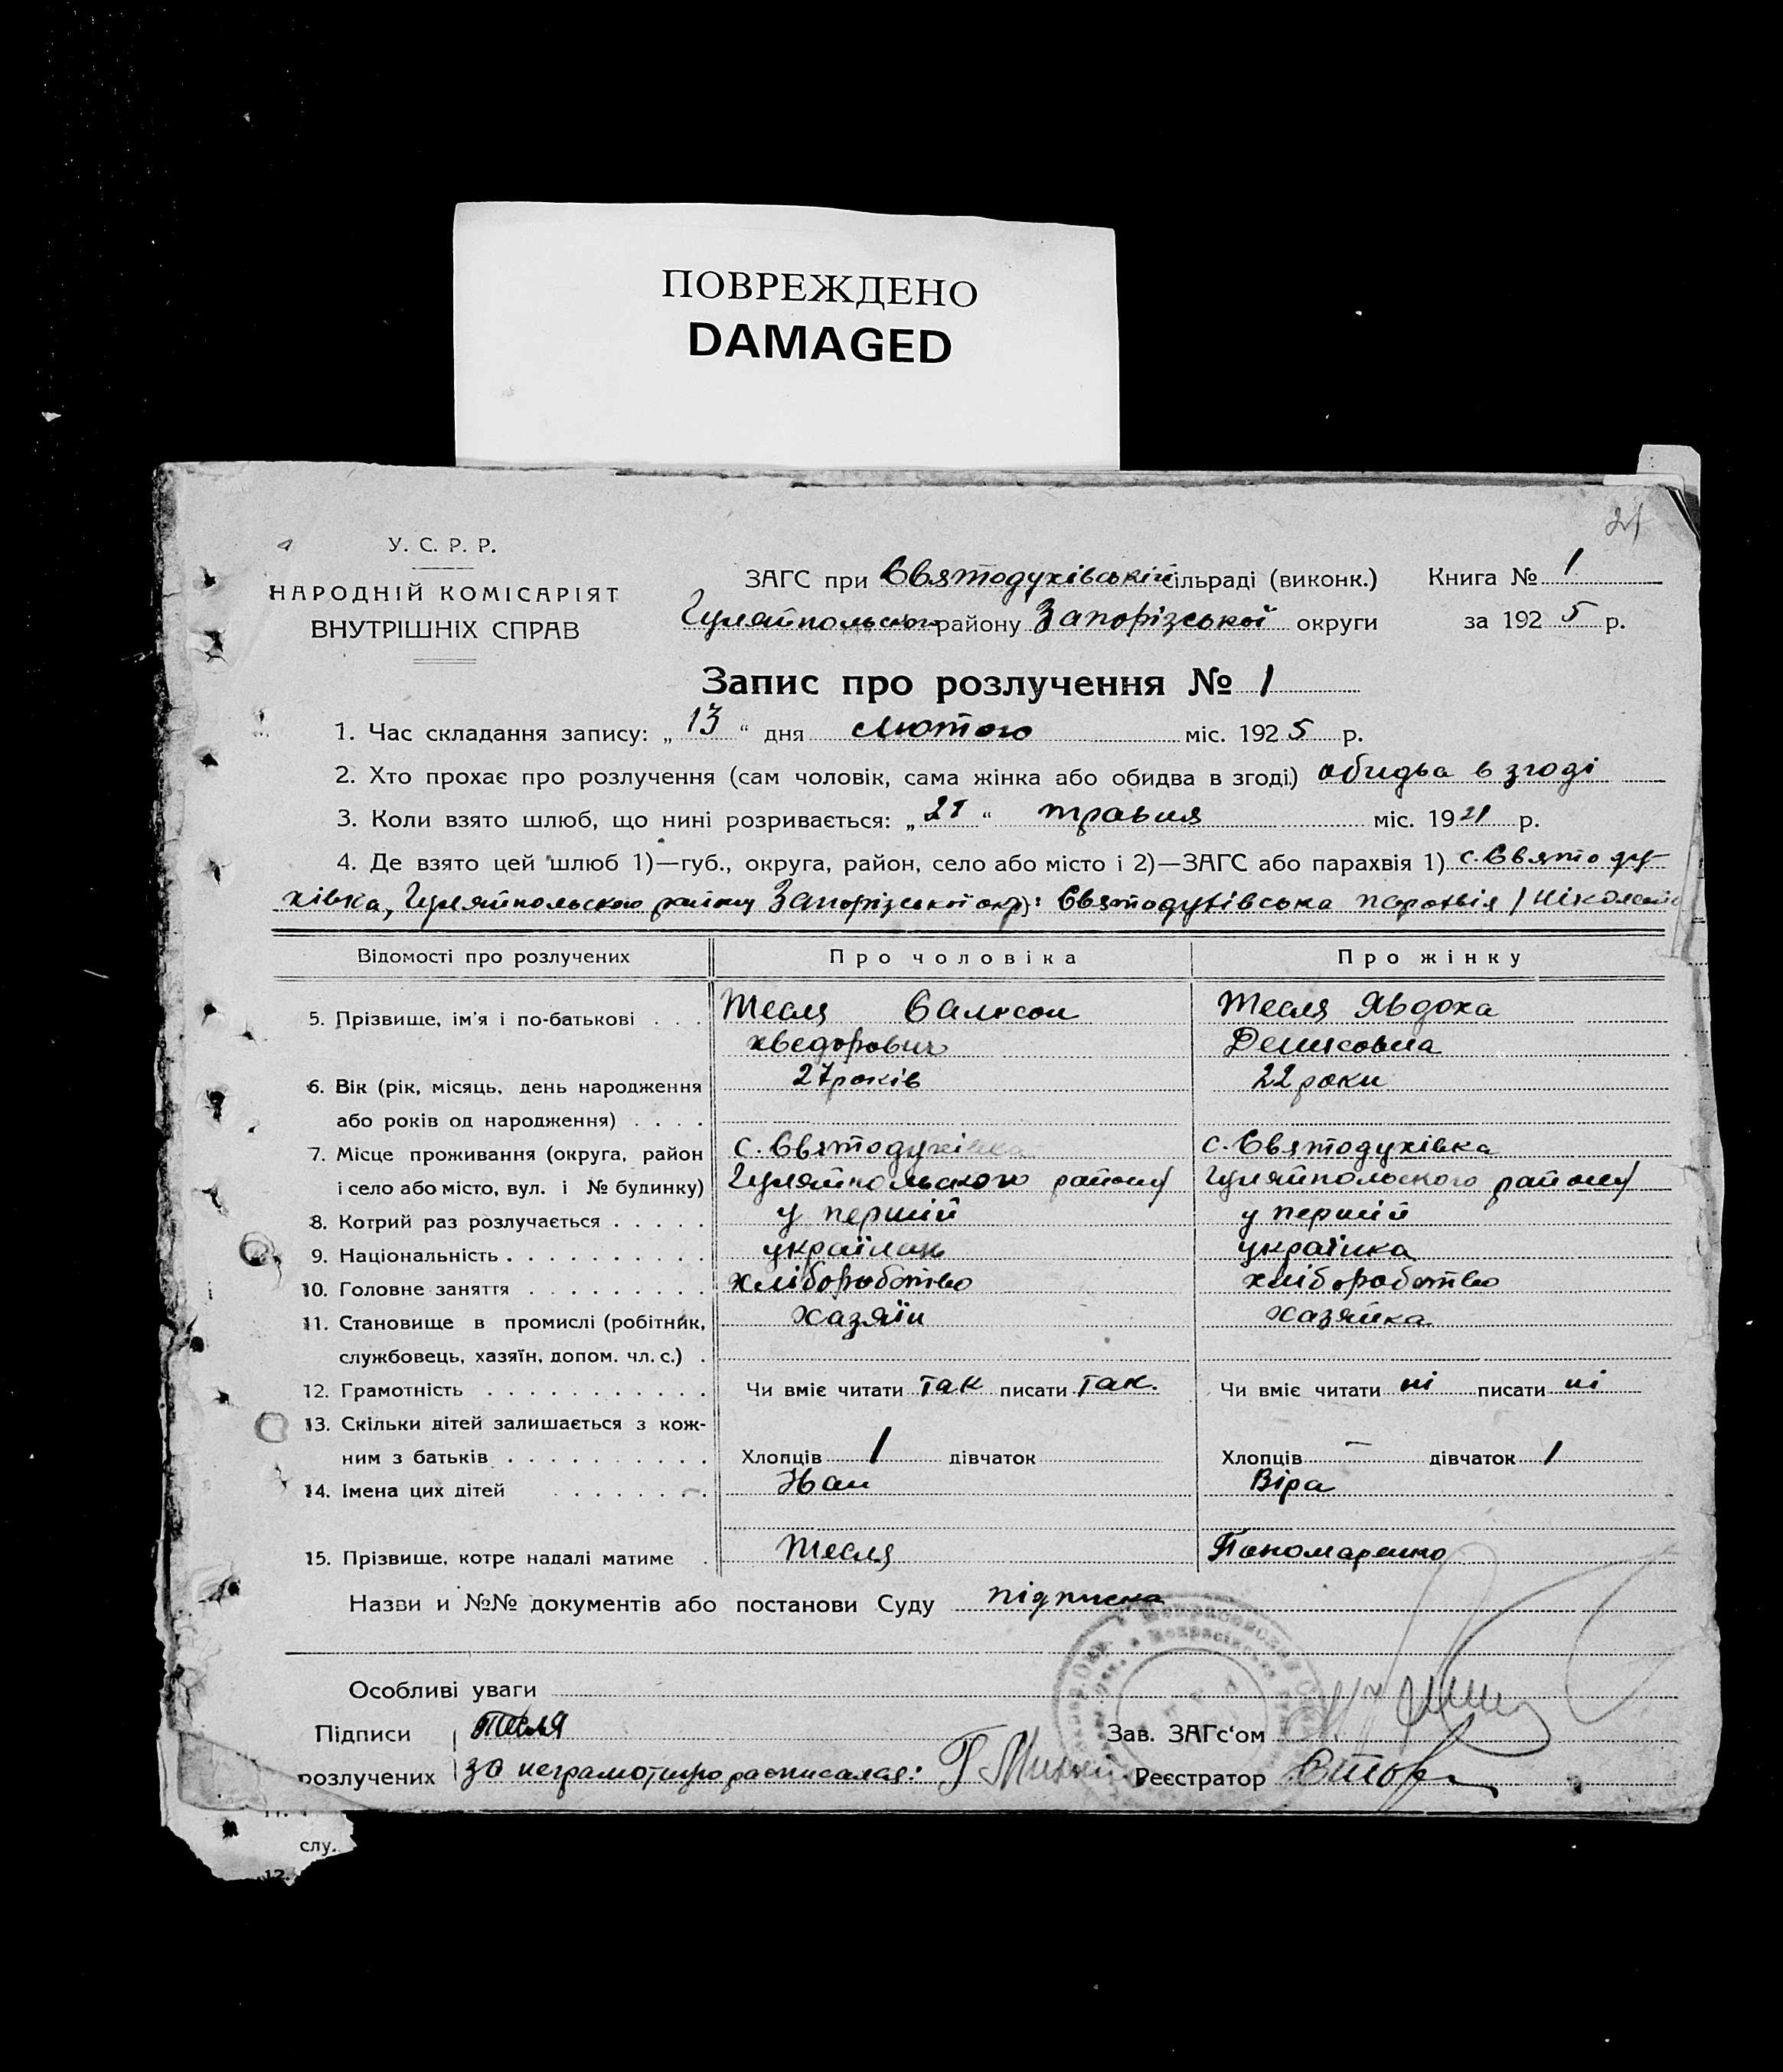 ПОВРЕЖДЕНО
DAMAGED
21
У. С. Р. Р.
НАРОДНІЙ КОМІСАРІЯТ
ВНУТРІШНІХ СПРАВ
ЗАГС при Святодухівській сільраді (виконк.) Книга № 1
Гуляйпольского району Запорізської округи за 1925 р.
Запис про розлучення № 1
1. Час складання запису: „13“ дня лютого міс. 1925 р.
2. Хто прохає про розлучення (сам чоловік, сама жінка або обидва в згоді) обидва в згоді
3. Коли взято шлюб, що нині розривається: „21“ травня міс. 1921 р.
4. Де взято цей шлюб 1)—губ., округа, район, село або місто і 2)—ЗАГС або парахвія 1) с. Святоду-
хівка, Гуляйпольского району Запорізської окр): Святодухівська парахвія /
Відомості про розлучених Про чоловіка Про жінку
5. Прізвище, ім'я і по-батькові . . . Тесля Самсон Тесля Явдоха
хведорович Денисовна
6. Вік (рік, місяць, день народження 27 років 22 роки
або років од народження) . . . .
7. Місце проживання (округа, район с. Святодухівка с. Святодухівка
і село або місто, вул. і № будинку) Гуляйпольского району Гуляйпольского району
8. Котрий раз розлучається . . . . . у перший у перший
9. Національність . . . . . . . . . . українець українка
10. Головне заняття . . . . . . . . . хлібороботво хлібороботво
11. Становище в промислі (робітник, хазяїн хазяйка
службовець, хазяїн, допом. чл. с.) .
12. Грамотність . . . . . . . . . . . Чи вміє читати так писати так. Чи вміє читати ні писати ні
13. Скільки дітей залишається з кож-
ним з батьків . . . . . . . . . . Хлопців 1 дівчаток Хлопців — дівчаток 1
14. Імена цих дітей . . . . . . . . Иван Віра
15. Прізвище, котре надалі матиме . Тесля Пономаренко
Назви и №№ документів або постанови Суду підписка
Особливі уваги
Підписи Тесля Зав. ЗАГс‘ом
розлучених за неграмотную расписалая: Г. Реєстратор
слу.
12.